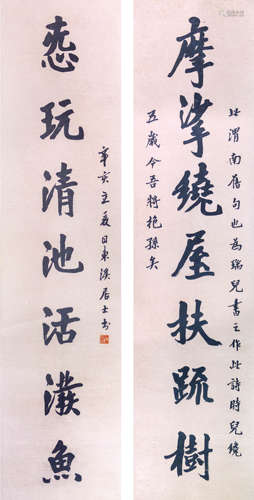 此渭南舊句也為瑞兒書之作此詩時兒纔
摩挲繞屋扶疏樹
五歲今吾將抱孫矣
辛亥立夏日東溪居士書
玩清池活潑魚